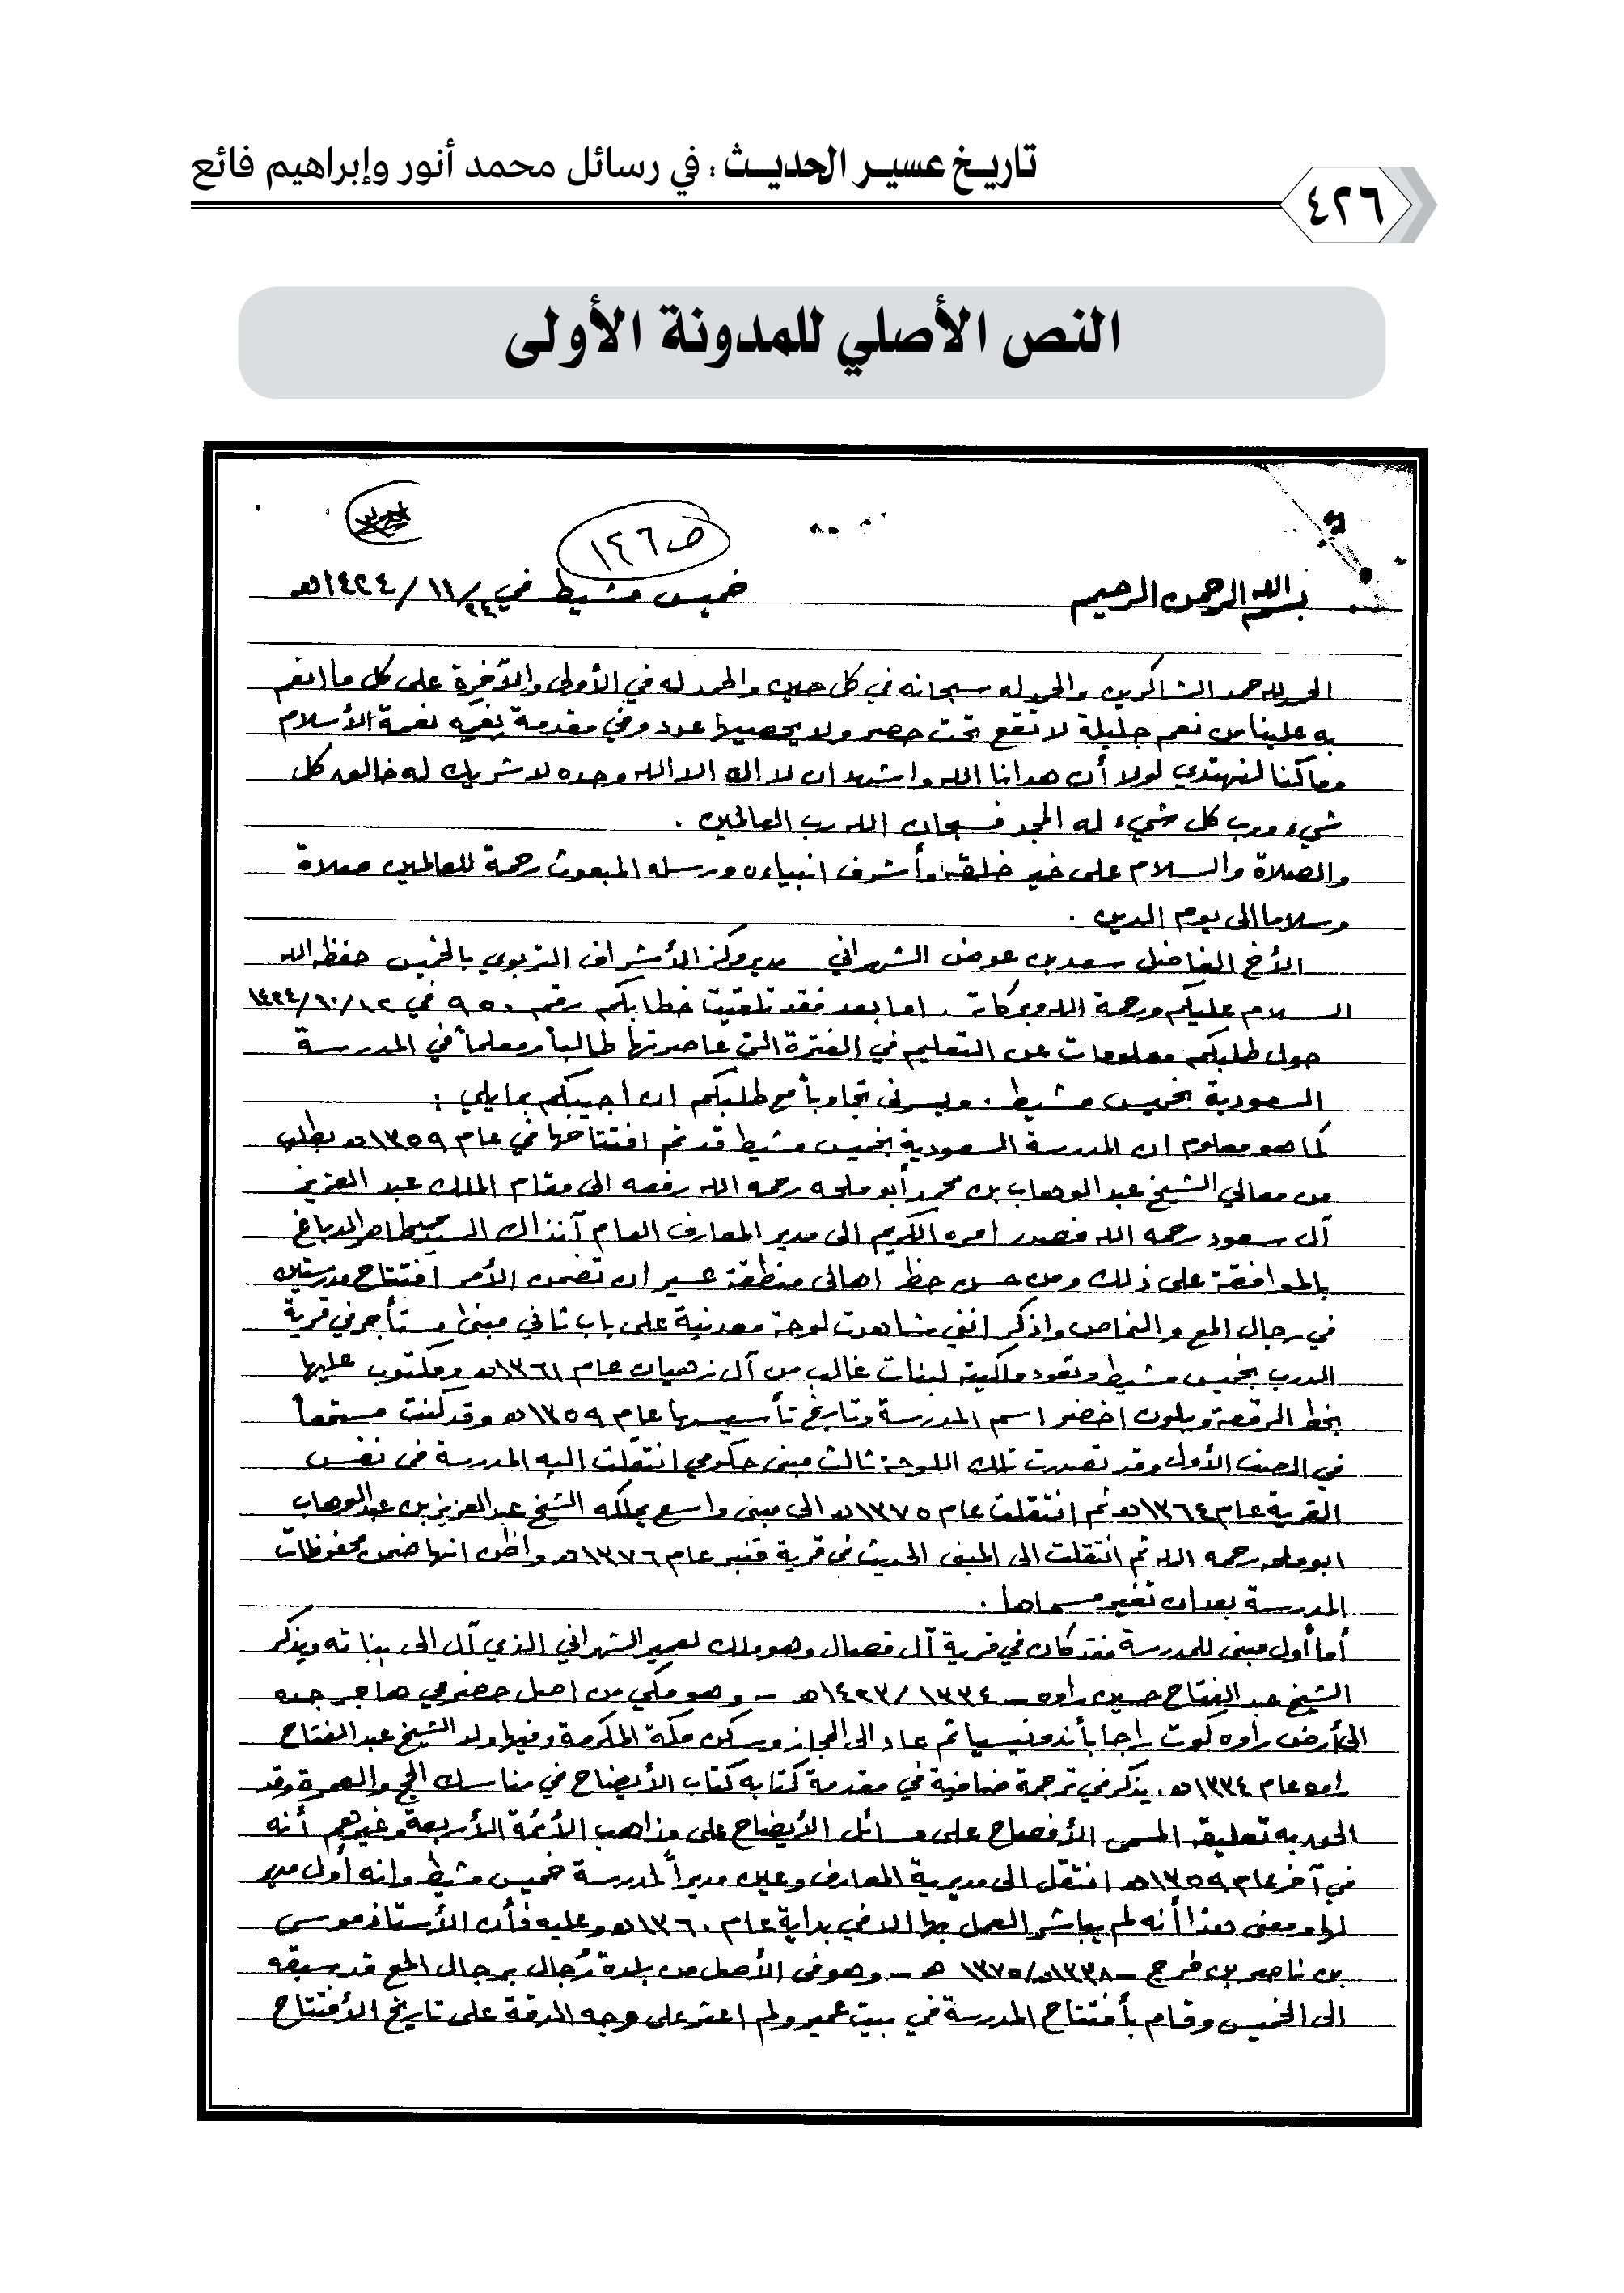 تاريخ عسير الحديث : في رسائل محمد أنور وإبراهيم فائع
٤٢٦
النص الأصلي للمدونة الأولى
ص ١٤٦
بسم الله الرحمن الرحيم
خميس مشيط في ٢٤/ ١١/ ١٤٢٤هـ
الحمد لله حمد الشاكرين والحمد له سبحانه في كل حين والحمد له في الأولى والآخرة على كل ما انعم
به علينا من نعم جليلة لا تقع تحت حصر ولا يحصيها عدد وفي مقدمة نعمه نعمة الأسلام
وما كنا لنهتدي لولا أن هدانا الله واشهد ان لا اله الا الله وحده لا شريك له خالق كل
شيء ورب كل شيء له المجد فسبحان الله رب العالمين .
والصلاة والسلام على خير خلقه وأشرف انبياءه ورسله المبعوث رحمة للعالمين صلاة
وسلاما الى يوم الدين .
الأخ الفاضل سعد بن عوض الشهراني مدير مركز الأشراف التربوي بالخميس حفظه الله
السلام عليكم ورحمة الله وبركاته . اما بعد فقد تلقيت خطابكم رقم ٩٥٠ في ١٢/ ١٠/ ١٤٢٤
حول طلبكم معلومات عن التعليم في الفترة التي عاصرتها طالباً ومعلماً في المدرسة
السعودية بخميس مشيط . ويسرني تجاوباً مع طلبكم ان اجيبكم بما يلي :
كما هو معلوم ان المدرسة السعودية بخميس مشيط قد تم افتتاحها في عام ١٣٥٩هـ بطلب
من معالي الشيخ عبد الوهاب بن محمد أبو ملحه رحمه الله رفعه الى مقام الملك عبد العزيز
آل سعود رحمه الله فصدر امره الكريم الى مدير المعارف العام آنذاك السيد محمد طاهر الدباغ
بالموافقة على ذلك ومن حسن حظ اهالي منطقة عسير ان تضمن الأمر افتتاح مدرستين
في رجال المع والنماص واذكر انني شاهدت لوحة معدنية على باب ثاني مبنى مستأجر في قرية
الدرب بخميس مشيط وتعود ملكيته لبنات غالب من آل زهيان عام ١٣٦١هـ ومكتوب عليها
بخط الرقعة وبلون اخضر اسم المدرسة وتاريخ تأسيسها عام ١٣٥٩هـ وقد كنت مستمعاً
في الصف الأول وقد تصدرت تلك اللوحة ثالث مبنى حكومي انتقلت اليه المدرسة في نفس
القرية عام ١٣٦٤هـ ثم انتقلت عام ١٣٧٥هـ الى مبنى واسع يملكه الشيخ عبد العزيز بن عبد الوهاب
ابو ملحه رحمه الله ثم انتقلت الى المبنى الحديث في قرية قنبر عام ١٣٧٦هـ واظن انها ضمن محفوظات
المدرسة بعد ان تغير مسماها .
أما أول مبنى للمدرسة فقد كان في قرية آل قصال وهو ملك لعمير الشهراني الذي آل الى بناته ويذكر
الشيخ عبد الفتاح حسين راوه – ١٣٣٤ / ١٤٢٣هـ – وهو مكي من اصل حضرمي هاجر جده
الى أرض راوه كوت راجا بأندونيسيا ثم عاد الى الحجاز وسكن مكة المكرمة وفيها ولد الشيخ عبد الفتاح
راوه عام ١٣٣٤هـ . يذكر في ترجمة ضافية في مقدمة كتابه كتاب الأيضاح في مناسك الحج والعمرة وقد
الحق به تعليقه المسمى الأفصاح على مسائل الأيضاح على مذاهب الأئمة الأربعة وغيرهم أنه
في آخر عام ١٣٥٩هـ انتقل الى مديرية المعارف وعين مديراً لمدرسة خميس مشيط وانه أول مدير
لها ومعنى هذا أنه لم يباشر العمل بها الا في بداية عام ١٣٦٠هـ وعليه فأن الأستاذ موسى
بن ناصر بن فرج – ١٣٣٨هـ/ ١٣٧٥ هـ – وهو في الأصل من بلدة رُجال برجال المع قد سبقه
الى الخميس وقام بأفتتاح المدرسة في بيت عمير ولم اعثر على وجه الدقة على تاريخ الأفتتاح